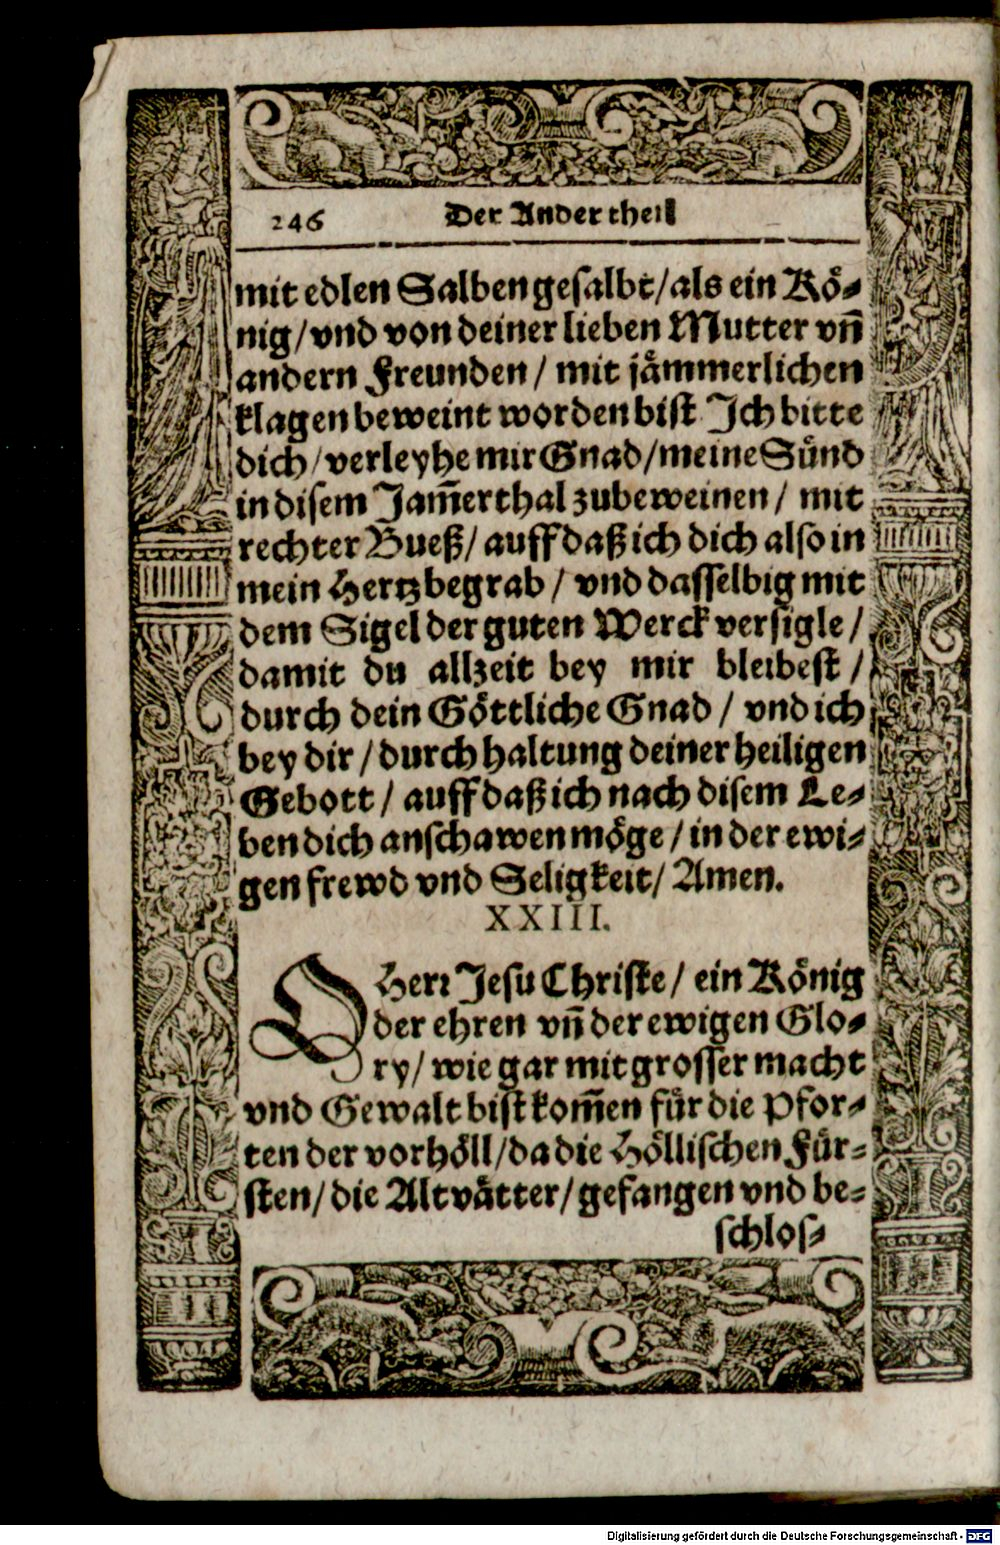 246 Der Ander theil
mit edlen Salben gesalbt/als ein Kö-
nig/vnd von deiner lieben Mutter vñ
andern Freunden / mit jämmerlichen
klagen beweint worden bist Ich bitte
dich/verleyhe mir Gnad/meine Sünd
in disem Jam̃erthal zubeweinen/ mit
rechter Bueß/ auff daß ich dich also in
mein Hertz begrab / vnd dasselbig mit
dem Sigel der guten Werck versigle/
damit du allzeit bey mir bleibest /
durch dein Göttliche Gnad / vnd ich
bey dir / durch haltung deiner heiligen
Gebott / auff daß ich nach disem Le-
ben dich anschawen möge / in der ewi-
gen frewd vnd Seligkeit/ Amen.
XXIII.
O Herr Jesu Christe/ ein König
der ehren vñ der ewigen Glo-
ry/ wie gar mit grosser macht
vnd Gewalt bist kom̃en für die Pfor-
ten der vorhöll/da die Höllischen Für-
sten/ die Altvätter/ gefangen vnd be-
schlos-
Digitalisierung gefördert durch die Deutsche Forschungsgemeinschaft - DFG